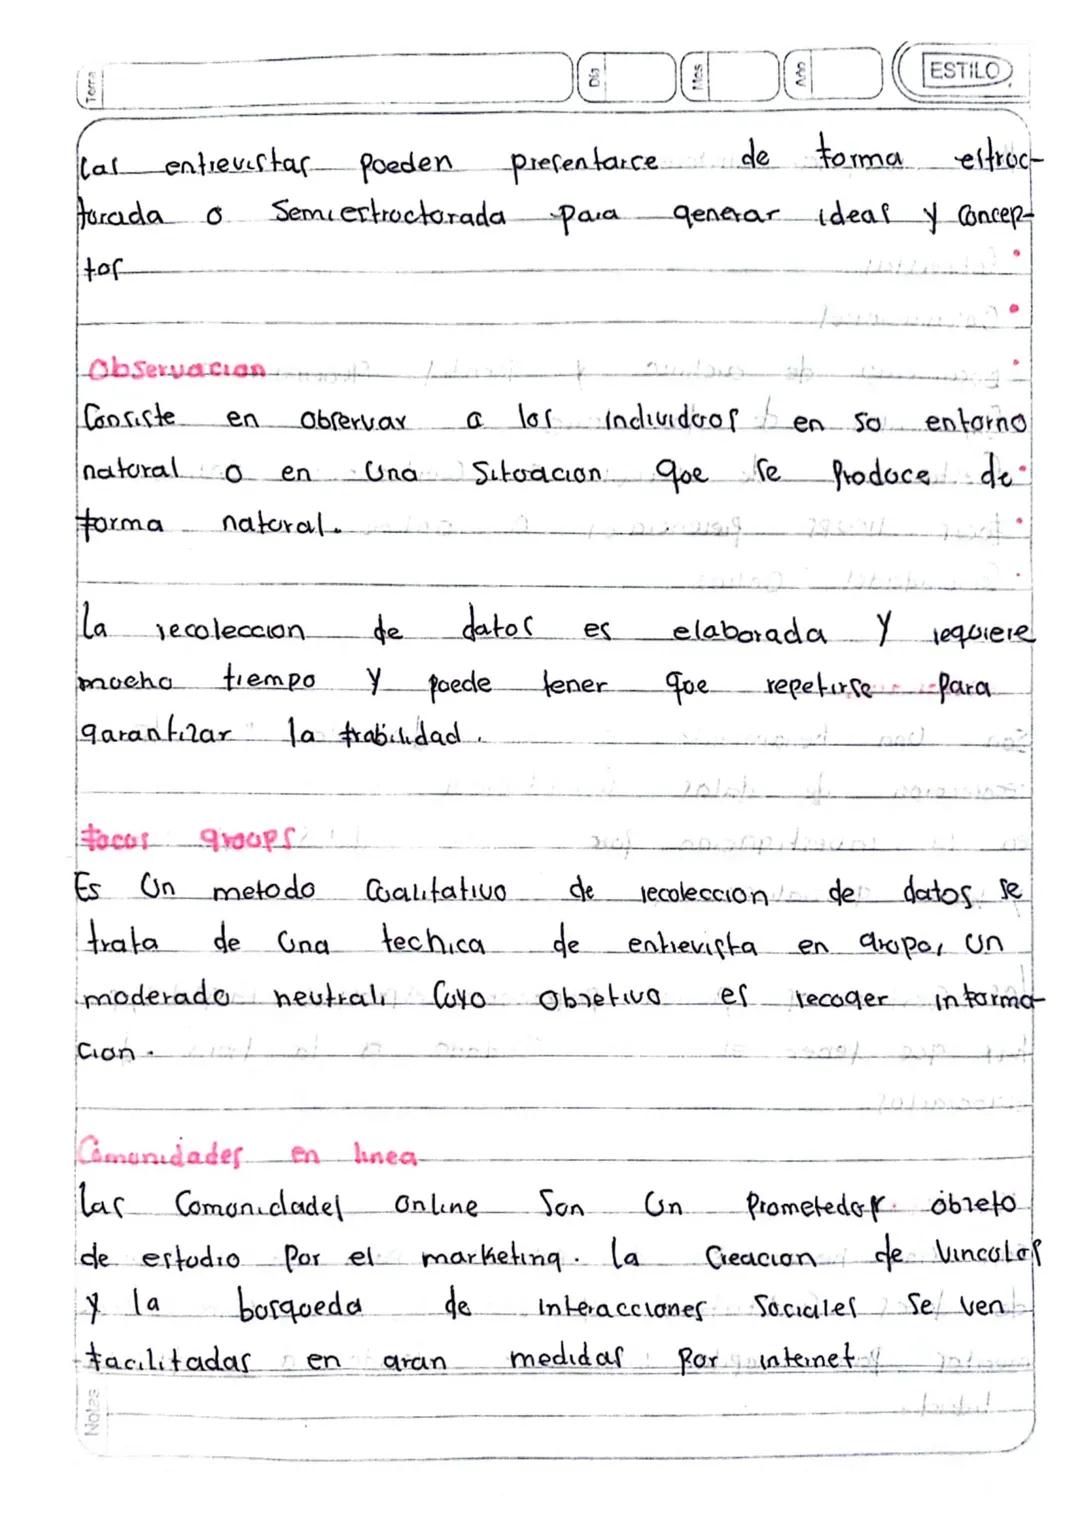 Tema Dia Mes Año ESTILO
Las entrevistas pueden presentarce de forma estruc-
turada o Semiestructurada para generar ideas y Concep-
tos
Observacion
Consiste en observar a los individuos en su entorno
natural o en una Situacion que se Produce de
forma natural.
La recoleccion de datos es elaborada y requiere
mucho tiempo y puede tener que repetirse para
garantizar la frabilidad.
focus groups
Es un metodo Cualitativo de recoleccion de datos se
trata de una techica de entrevista en grupo, un
moderado neutral, Cuyo Objetivo es recoger informa-
cion.
Comunidades en linea
Las Comunidades Online Son Un Prometedor objeto
de estudio Por el marketing. La Creacion de Vinculos
y la busqueda de interacciones Sociales Se ven
facilitadas en gran medidas Por internet
Notas